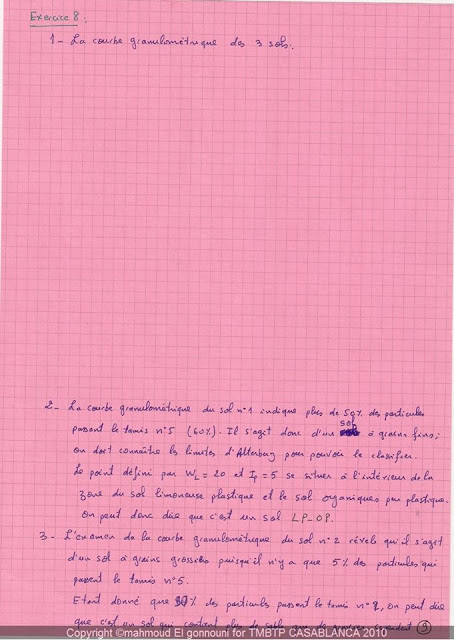 Exercice 8 :
1- La courbe granulométrique des 3 sols.
2- La courbe granulométrique du sol n°1 indique plus de 50% des particules
passant le tamis n°5 (60%). Il s'agit donc d'un sol à grains fins;
on doit connaître les limites d'Atterberg pour pouvoir le classifier.
Le point défini par WL = 20 et Ip = 5 se situer à l'intérieur de la
zone du sol limoneuse plastique et le sol organiques peu plastique.
On peut donc dire que c'est un sol LP-OP.
3- L'examen de la courbe granulométrique du sol n°2 révèle qu'il s'agit
d'un sol à grains grossiers puisqu'il n'y a que 5% des particules qui
passent le tamis n°5.
Etant donné que % des particules passent le tamis n°2, on peut dire
que c'est un sol qui contient plus de sable que de
Copyright ©mahmoud El gonnouni for TMBTP CASABLANCA 2010
9